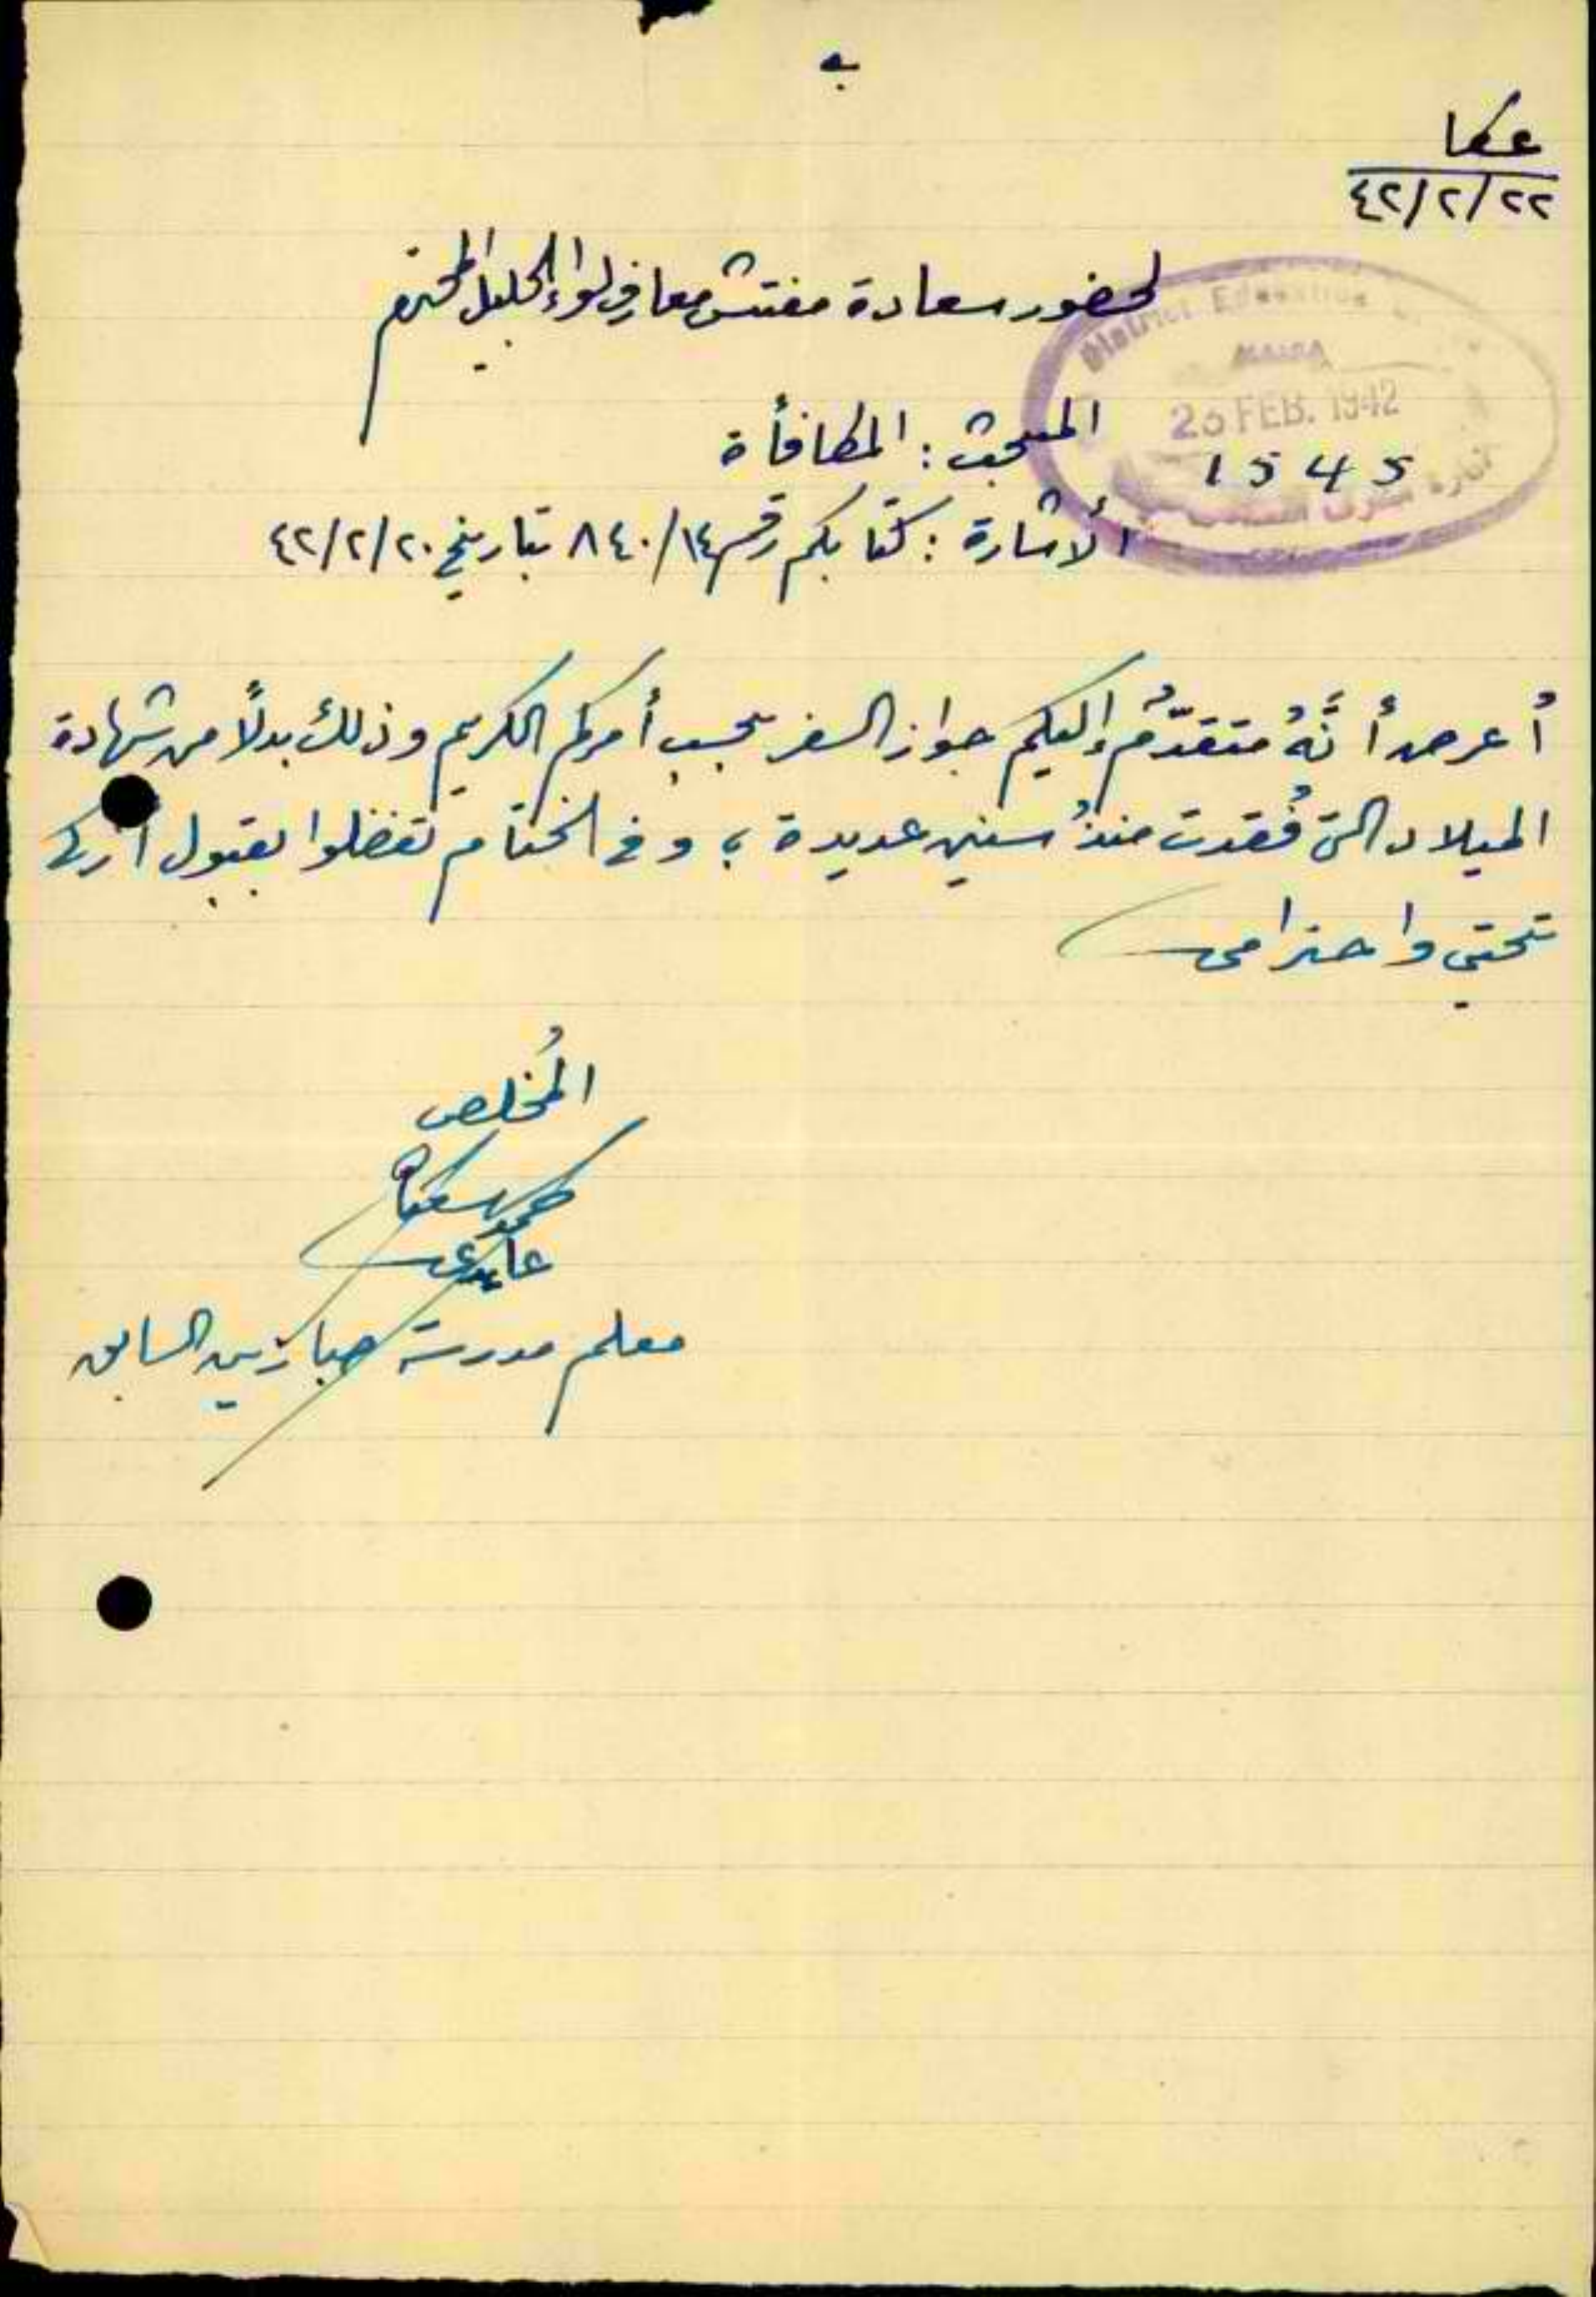 عكا
٤٢/٢/٢٢
لحضور سعادة مفتش معارف لواء الجليل المحترم
District Education
26 FEB. 1942
1545
المبحث : المكافأة
الاشارة : كتابكم رقم ٨٤٠/١٤ بتاريخ ٤٢/٢/٢٠
أعرض أنَّهُ متقدّمٌ إليكم جواز السفر بحسب أمركم الكريم وذلك بدلًا من شهادة
الميلاد التي فُقدت منذُ سنين عديدة ؛ وفي الختام تفضلوا بقبول ازكى
تحيتي واحترامي
المُخلص
عابدي
معلم مدرسة السابق